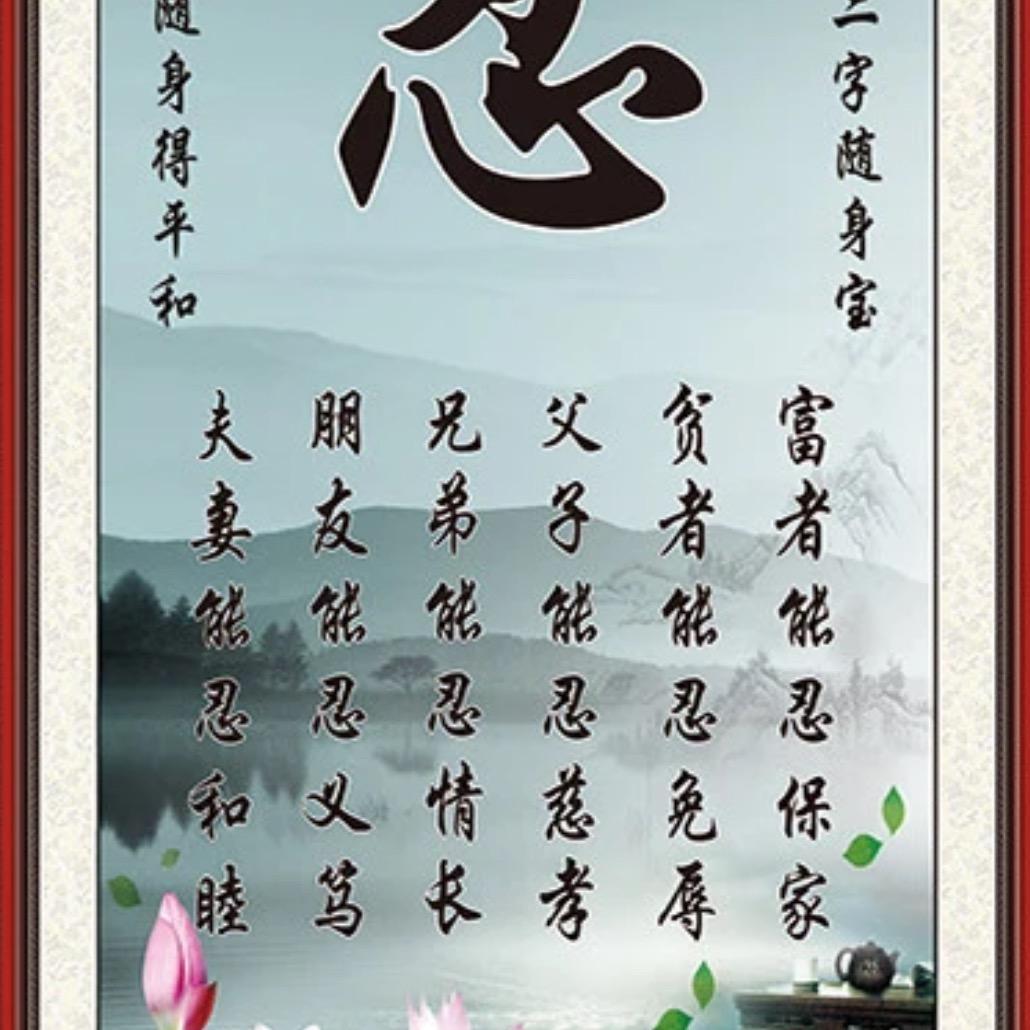 忍
二字随身宝
随身得平和
富者能忍保家
贫者能忍免辱
父子能忍慈孝
兄弟能忍情长
朋友能忍义笃
夫妻能忍和睦